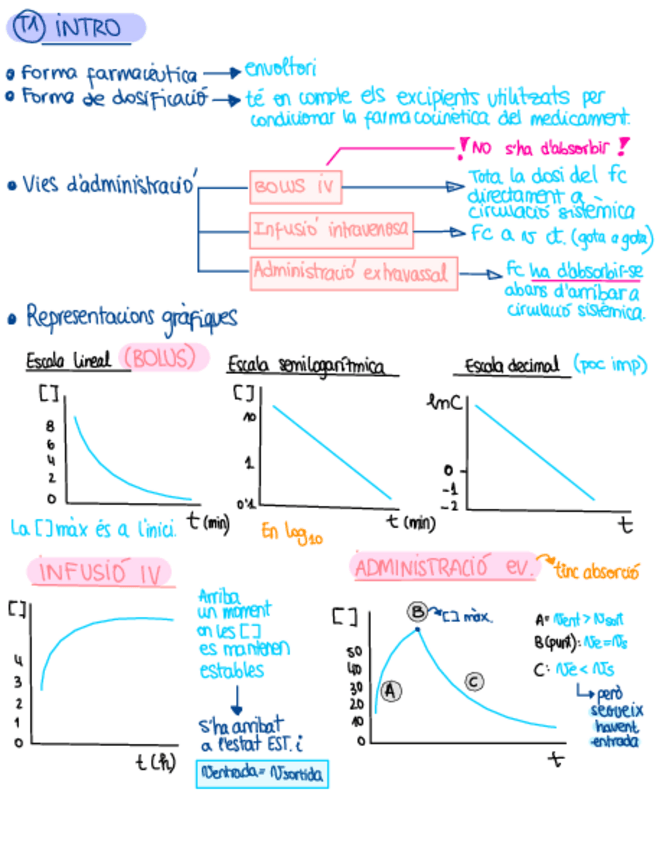 T1 INTRO
• Forma farmacèutica → envoltori
• Forma de dosificació → té en compte els excipients utilitzats per
condicionar la farmacocinètica del medicament.
! NO s'ha d'absorbir !
• Vies d'administració
BOLUS IV → Tota la dosi del fc
directament a
circulació sistèmica
Infusió intravenosa → Fc a v ct. (gota a gota)
Administració extravassal → Fc ha d'absorbir-se
abans d'arribar a
circulació sistèmica.
• Representacions gràfiques
Escala lineal (BOLUS)
[ ]
8
6
4
2
0
t (min)
La [ ] màx és a l'inici.
Escala semilogarítmica
[ ]
10
1
0'1
t (min)
En log10
Escala decimal (poc imp)
lnC
0
-1
-2
t
INFUSIÓ IV
[ ]
4
3
2
1
0
t (h)
Arriba
un moment
on les [ ]
es mantenen
estables
↓
s'ha arribat
a l'estat EST. i
Ventrada = Vsortida
ADMINISTRACIÓ ev. → tinc absorció
[ ]
50
40
30
20
10
0
A
B → [ ] màx.
C
t
A= Vent > Vsort
B (punt): Ve = Vs
C: Ve < Vs
↳ però
segueix
havent
entrada